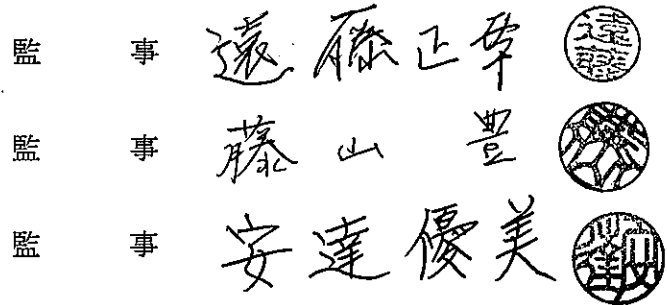 監事 遠藤正幸 遠藤
監事 藤山豊
監事 安達優美 安達